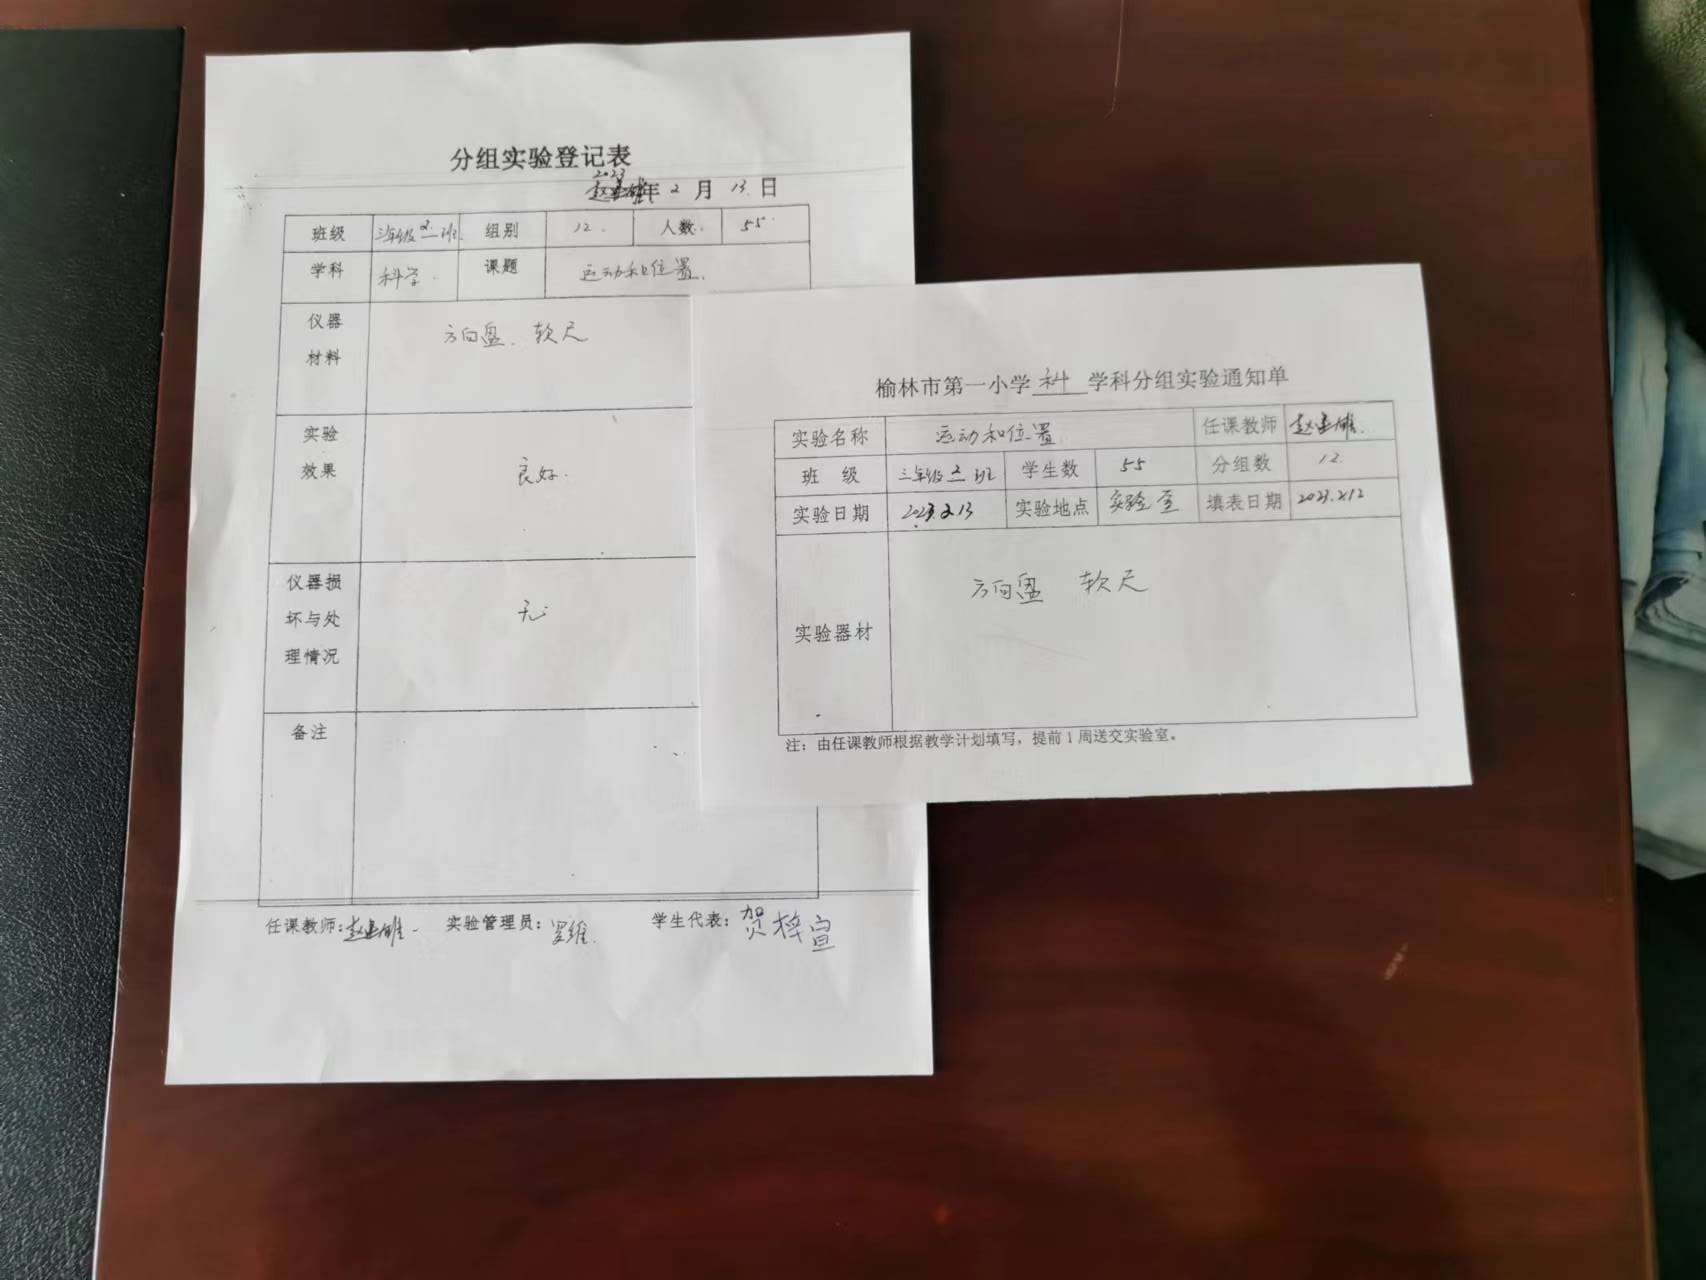 分组实验登记表
2023
年 2 月 13. 日
班级 三年级 2. 班 组别 12. 人数. 55.
学科 科学. 课题 运动和位置.
仪器
材料
方向盘. 软尺
实验
效果
良好.
仪器损
坏与处
理情况
无
备注
任课教师: 赵建雄. 实验管理员: 罗维. 学生代表: 贺梓宣
榆林市第一小学 科 学科分组实验通知单
实验名称 运动和位置 任课教师 赵建雄.
班 级 三年级 2 班 学生数 55 分组数 12.
实验日期 2023.2.13 实验地点 实验室 填表日期 2023.2.12
实验器材 方向盘 软尺
注：由任课教师根据教学计划填写，提前 1 周送交实验室。